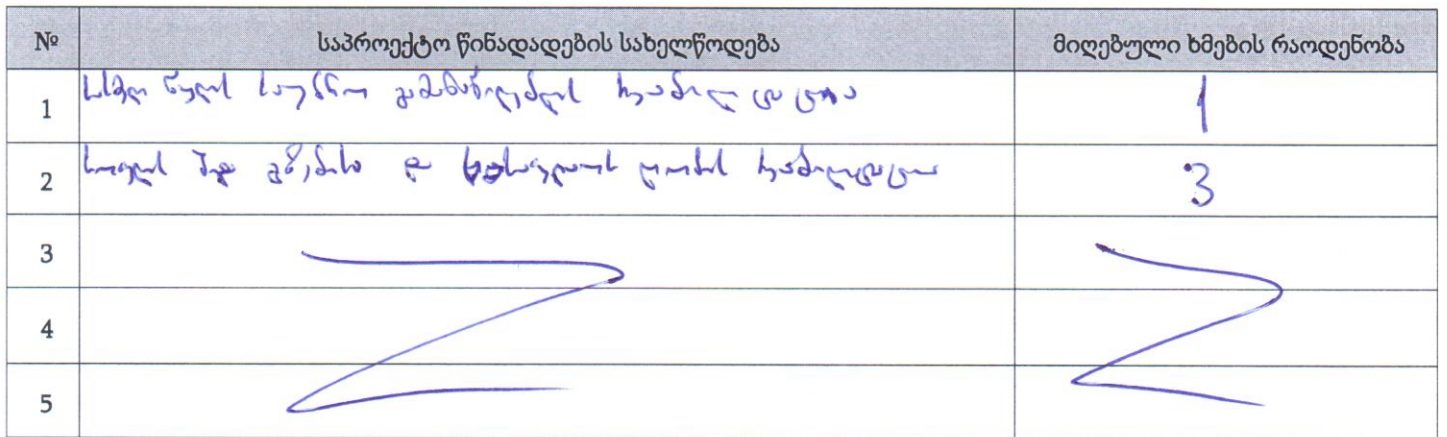 № საპროექტო წინადადების სახელწოდება მიღებული ხმების რაოდენობა
1 სასმელი წყლის საუბნო გამანაწილებლის რეაბილიტაცია 1
2 სოფლის შიდა გზების და სასაფლაოს ღობის რეაბილიტაცია 3
3
4
5